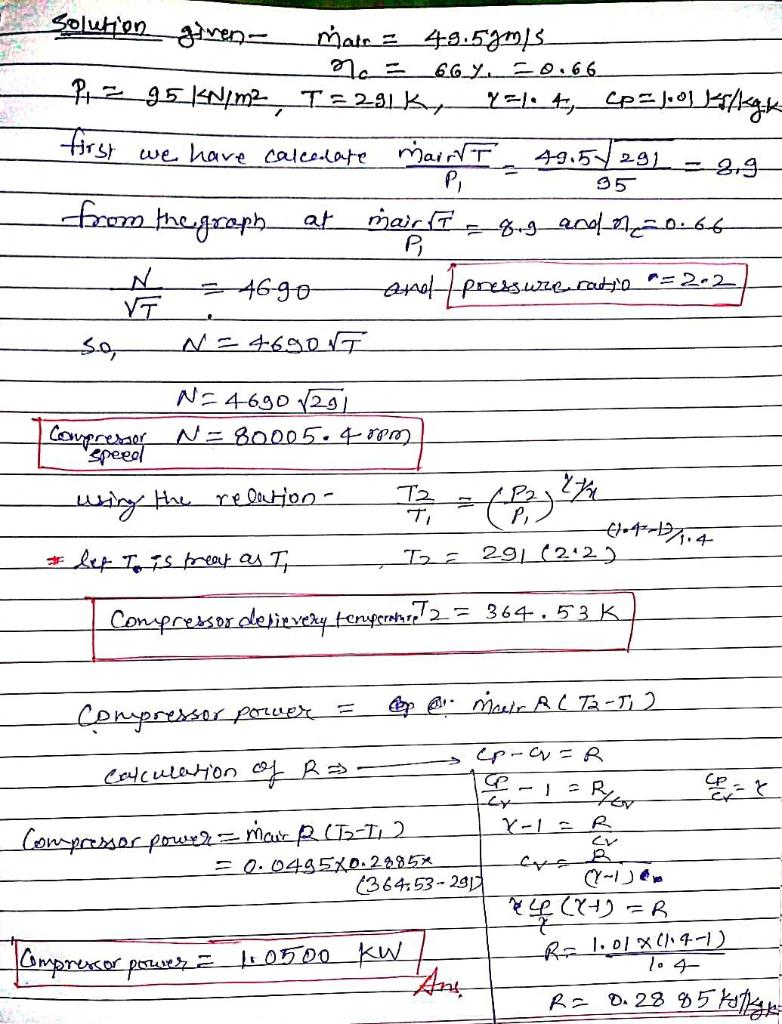 Solution given- ṁair = 49.5gm/s
ηc = 66 %. = 0.66
P₁ = 95 KN/m2, T = 291 K, γ = 1.4, CP = 1.01 KJ/kg.k
first we have calculate ṁair√T / P₁ = 49.5√291 / 95 = 8.9
from the graph at ṁair√T / P₁ = 8.9 and ηc = 0.66
N / √T = 4690 and pressure ratio = 2.2
So, N = 4690 √T
N = 4690 √291
Compressor speed N = 80005.4 rpm
using the relation - T2 / T₁ = (P2 / P₁)
* let To is treat as T₁ T2 = 291 (2.2)^(1.4-1)/1.4
Compressor delievery temperature T2 = 364.53 K
Compressor power = ṁair R (T2-T₁)
calculation of R ⇒ → CP - Cv = R
CP / Cv - 1 = R/Cv CP / Cv = γ
Compressor power = ṁair R (T2-T₁) γ-1 = R / Cv
= 0.0495×0.2885× Cv = R / (γ-1)
(364.53-291)
CP / γ (γ-1) = R
Compressor power = 1.0500 KW Ans. R = 1.01 × (1.4-1) / 1.4
R = 0.2885 KJ/kg k